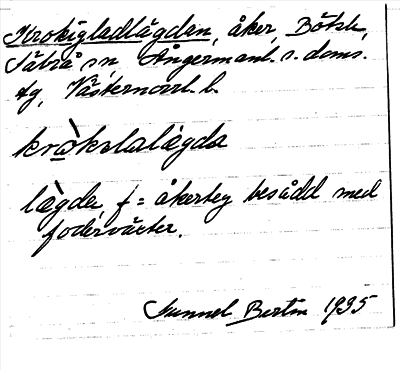 Krokigladlägdan, åker, Bölsta,
Säbrå sn, Ångermanl. s. doms.
tg, Västernorrl. l.
kròkslalægda
lægda, f = åkerteg besådd med
foderväxter.
Gunnel Bertin 1935